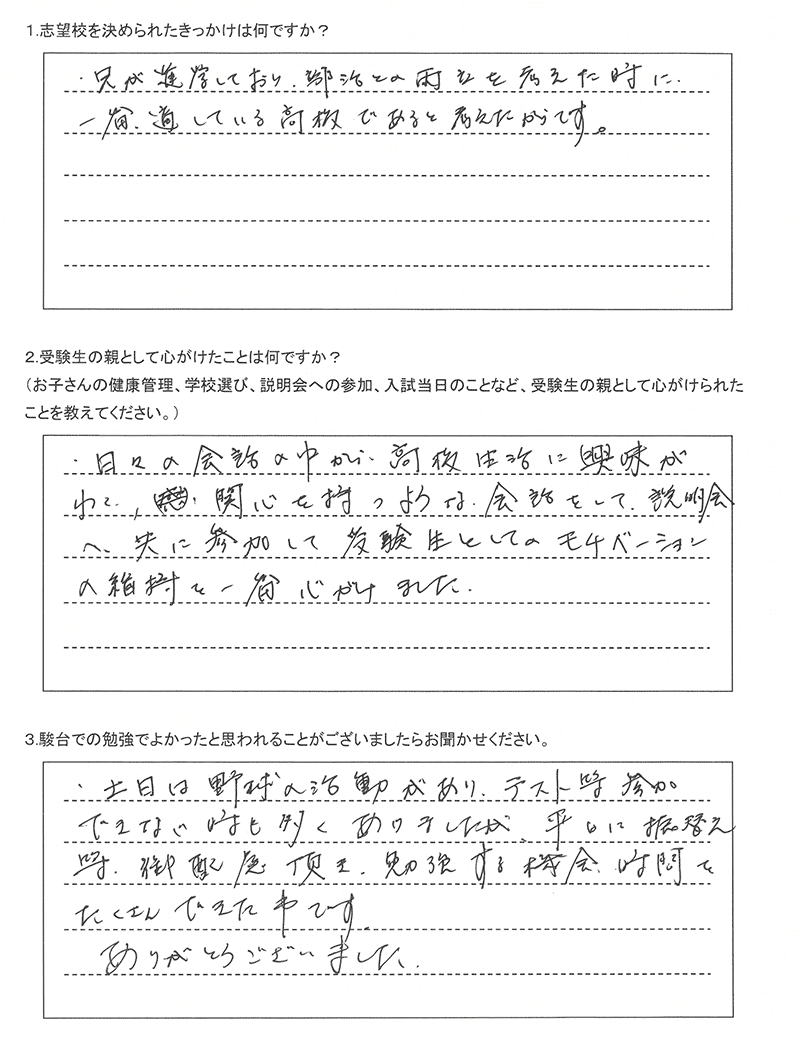 1.志望校を決められたきっかけは何ですか？
・兄が進学しており、部活との両立を考えた時に、
一番、適している高校であると考えたからです。
2.受験生の親として心がけたことは何ですか？
（お子さんの健康管理、学校選び、説明会への参加、入試当日のことなど、受験生の親として心がけられた
ことを教えてください。）
・日々の会話の中から、高校生活に興味が
わく、関心を持つような、会話をして、説明会
へ、共に参加して受験生としてのモチベーション
の維持を一番心がけました。
3.駿台での勉強でよかったと思われることがございましたらお聞かせください。
・土日は野球の活動があり、テスト等参加
できない時も多くありましたが、平日に振替え
等、御配慮頂き、勉強する機会、時間を
たくさんできた事です。
ありがとうございました。